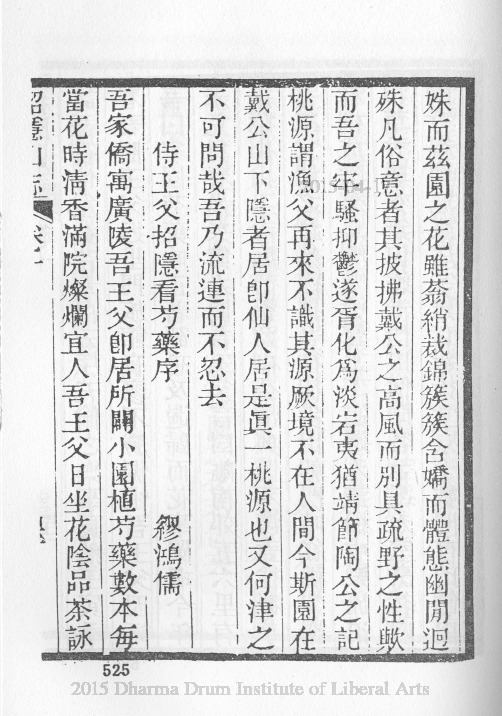 姝而茲園之花雖蓊綃裁錦簇簇含嬌而體態幽閒迥
殊凡俗意者其披拂戴公之高風而別具疏野之性歟
而吾之牢騷抑鬱遂胥化為淡岩夷猶靖節陶公之記
桃源謂漁父再來不識其源厥境不在人間今斯園在
戴公山下隱者居卽仙人居是眞一桃源也又何津之
不可問哉吾乃流連而不忍去
侍王父招隱看芍藥序 繆鴻儒
吾家僑寓廣陵吾王父卽居所闢小園植芍藥數本每
當花時清香滿院燦爛宜人吾王父日坐花陰品茶詠
招隱山志 卷十
525
2015 Dharma Drum Institute of Liberal Arts